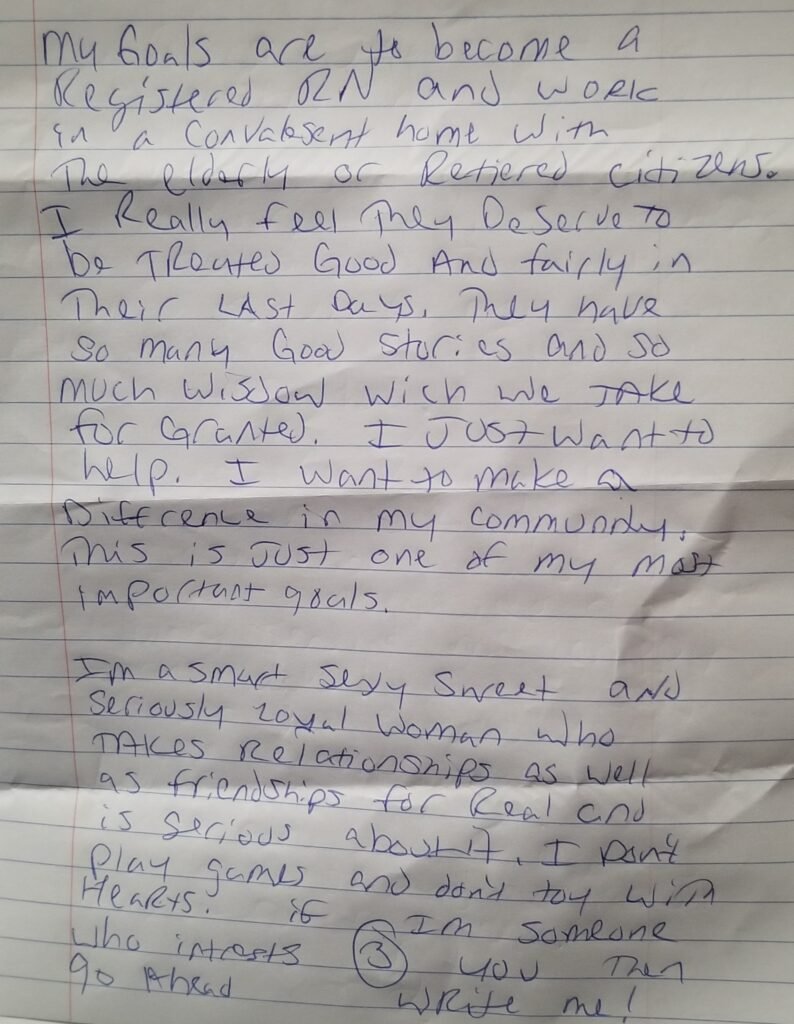 My Goals are to become a
Registered RN and work
in a Convalesent home with
The elderly or Retiered citizens.
I Really feel They Deserve to
be TReated Good And fairly in
Their LAst Days. They have
so many Good stories and so
much Wisdow wich we TAke
for Granted. I JUST want to
help. I want to make a
Difference in my community.
This is JUST one of my most
important goals.
Im a smart sexy sweet and
seriously loyal woman who
TAKES Relationships as well
as friendships for Real and
is serious about it. I Don't
play games and don't toy with
Hearts. if Im someone
who intrests you Then
go Ahead write me!
3